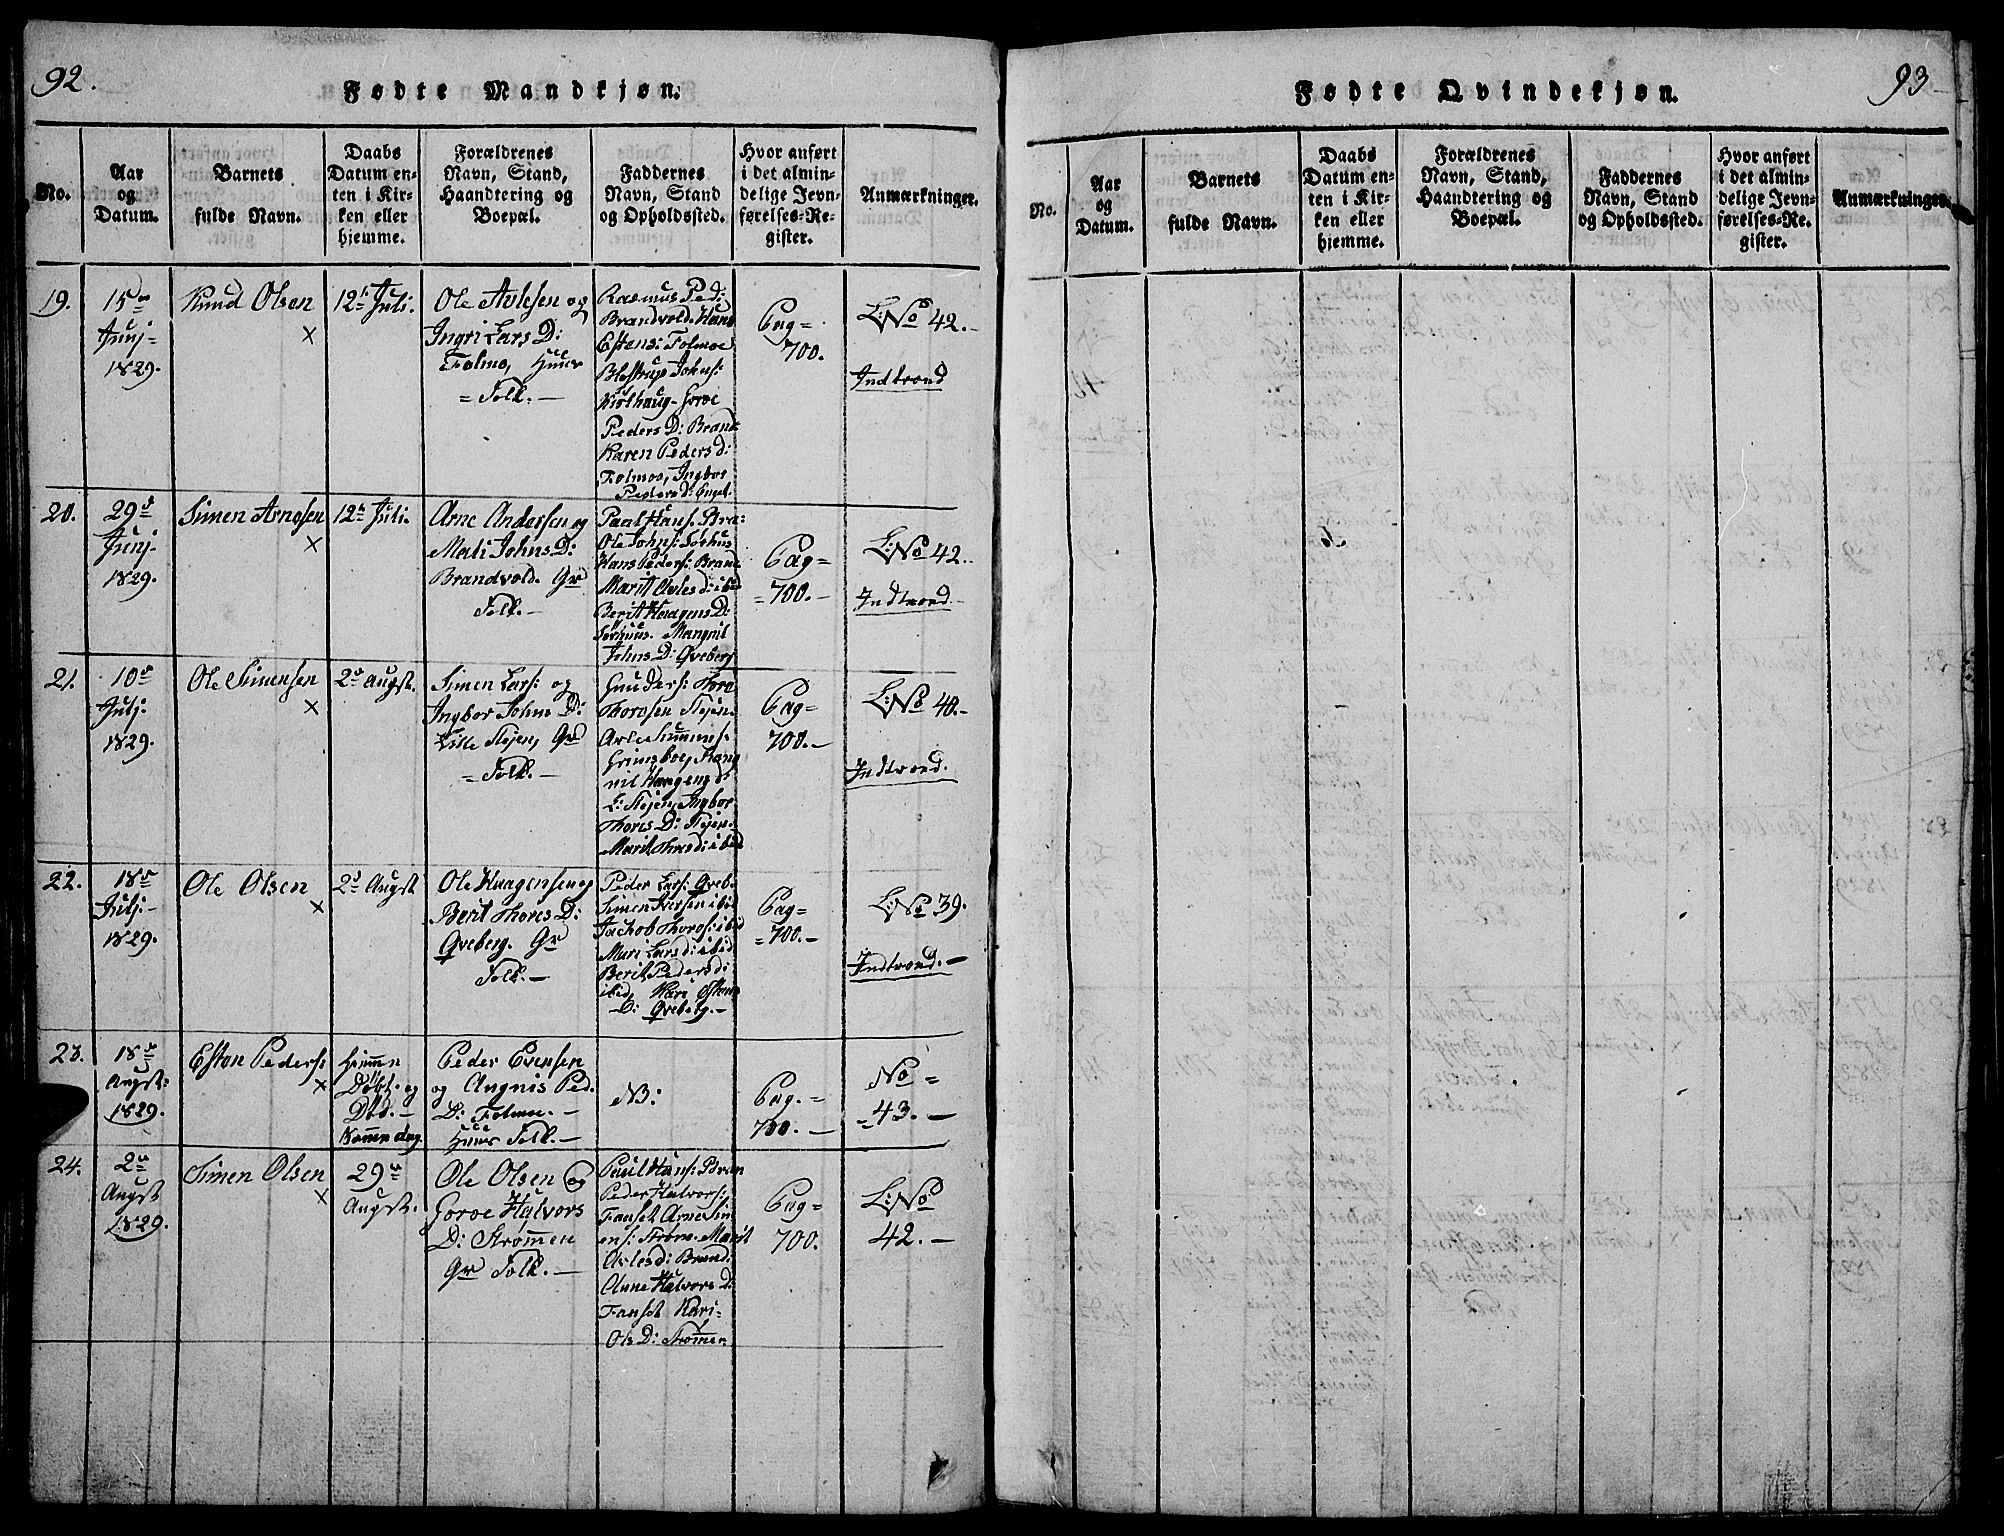 92.
Fødte Mandkjøn.
No.
Aar
og
Datum.
Barnets
fulde Navn.
Daabs
Datum en-
ten i Kir-
ken eller
hjemme.
Forældrenes
Navn, Stand,
Haandtering og
Boepæl.
Faddernes
Navn, Stand
og Opholdssted.
Hvor anført
i det almin-
delige Jevn-
førelses-Re-
gister.
Anmærkninger.
19.
15de
Junj-
1829.
Knud Olsen
×
12te Juli.
Ole Avlesen og
Ingri Lars D:
Folmo, Huus
= Folk. —
Rasmus Ped:
Brandvold. Hans
Estens: Folmoe
Johns:
Peders D: Brand
Karen Peders d:
Folmoe, Ingbor
Peders d:
Pag=
700.
L: No 42.-
Indtrond
20.
29de
Junj-
1829.
Simen Arnesen
×
12te Juli.
Arne Andersen og
Mali Johns D:
Brandvold. Gr
Folk. —
Paal Hans. Bra=
Ole Johns:
Hans Peders: Brand
Marit Avles d: ibid
Berit Haagens D:
Johns D: Qveberg
Pag=
=700.—
L: No 42..
Indtrond
21.
10de
Julj-
1829.
Ole Simensen
×
2de Augst.
Simen Lars: og
Ingbor Johns D:
Lille Stejen, Gr
= Folk. —
Gunders: Thore
Thorosen Stejen.
Avle
Haagens d:
L: Stejen, Ingbor
Thores D: Stejen.
Marit Thors d: ibid
Pag=
700.—
L: No 40.-
Indtrond.
22.
18de
Julj.-
1829.
Ole Olsen
×
2de Augst
Ole Haagensen og
Berit Thores D:
Qveberg. Gr
Folk. —
Peder Lars: Qveb.
Simen Iversen ibid
Jachob Thoros: ibid
Mari Lars d: ibid
Berit Peders d:
ibid, Kari Estens
D: Qveberg.—
Pag=
=700.—
L: No 39.
Indtrond.—
23.
18de
Augst:
1829.
Esten Peders:
×
Hiemme
Døbt. og
Død.—
Peder Evensen
og Angnis Ped.
D: Folmoe. —
Huus Folk. —
NB:
Pag.=
700.—
No=
=43.—
24.
2de
Augst
1829.
Simen Olsen
×
29de
Augst.
Ole Olsen og
Goroe Halvors
D: Strømen
Gr Folk. —
Paul Hans: Bran
Peder Halvors:
Fanset Arne Sim
ens: Strøm. Marit
Avles d: Brand:
Anne Halvors D:
Fanset Kari-
Ols D: Strømen.
Pag=
700.
L: No
42.—
93
Fødte Qvindekjøn.
No.
Aar
og
Datum.
Barnets
fulde Navn.
Daabs
Datum en-
ten i Kir-
ken eller
hjemme.
Forældrenes
Navn, Stand,
Haandtering og
Boepæl.
Faddernes
Navn, Stand
og Opholdssted.
Hvor anført
i det almin-
delige Jevn-
førelses-Re-
gister.
Anmærkninger.